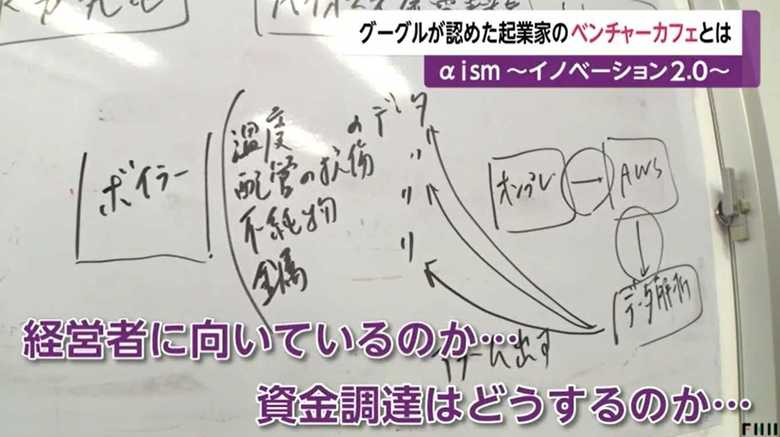 グーグルが認めた起業家のベンチャーカフェとは
αism ～イノベーション2.0～
ボイラー
温度 のデータ
配管の損傷 〃
不純物 〃
金属 〃
オンプレ → AWS
↓
データ解析
に出す
経営者に向いているのか…
資金調達はどうするのか…